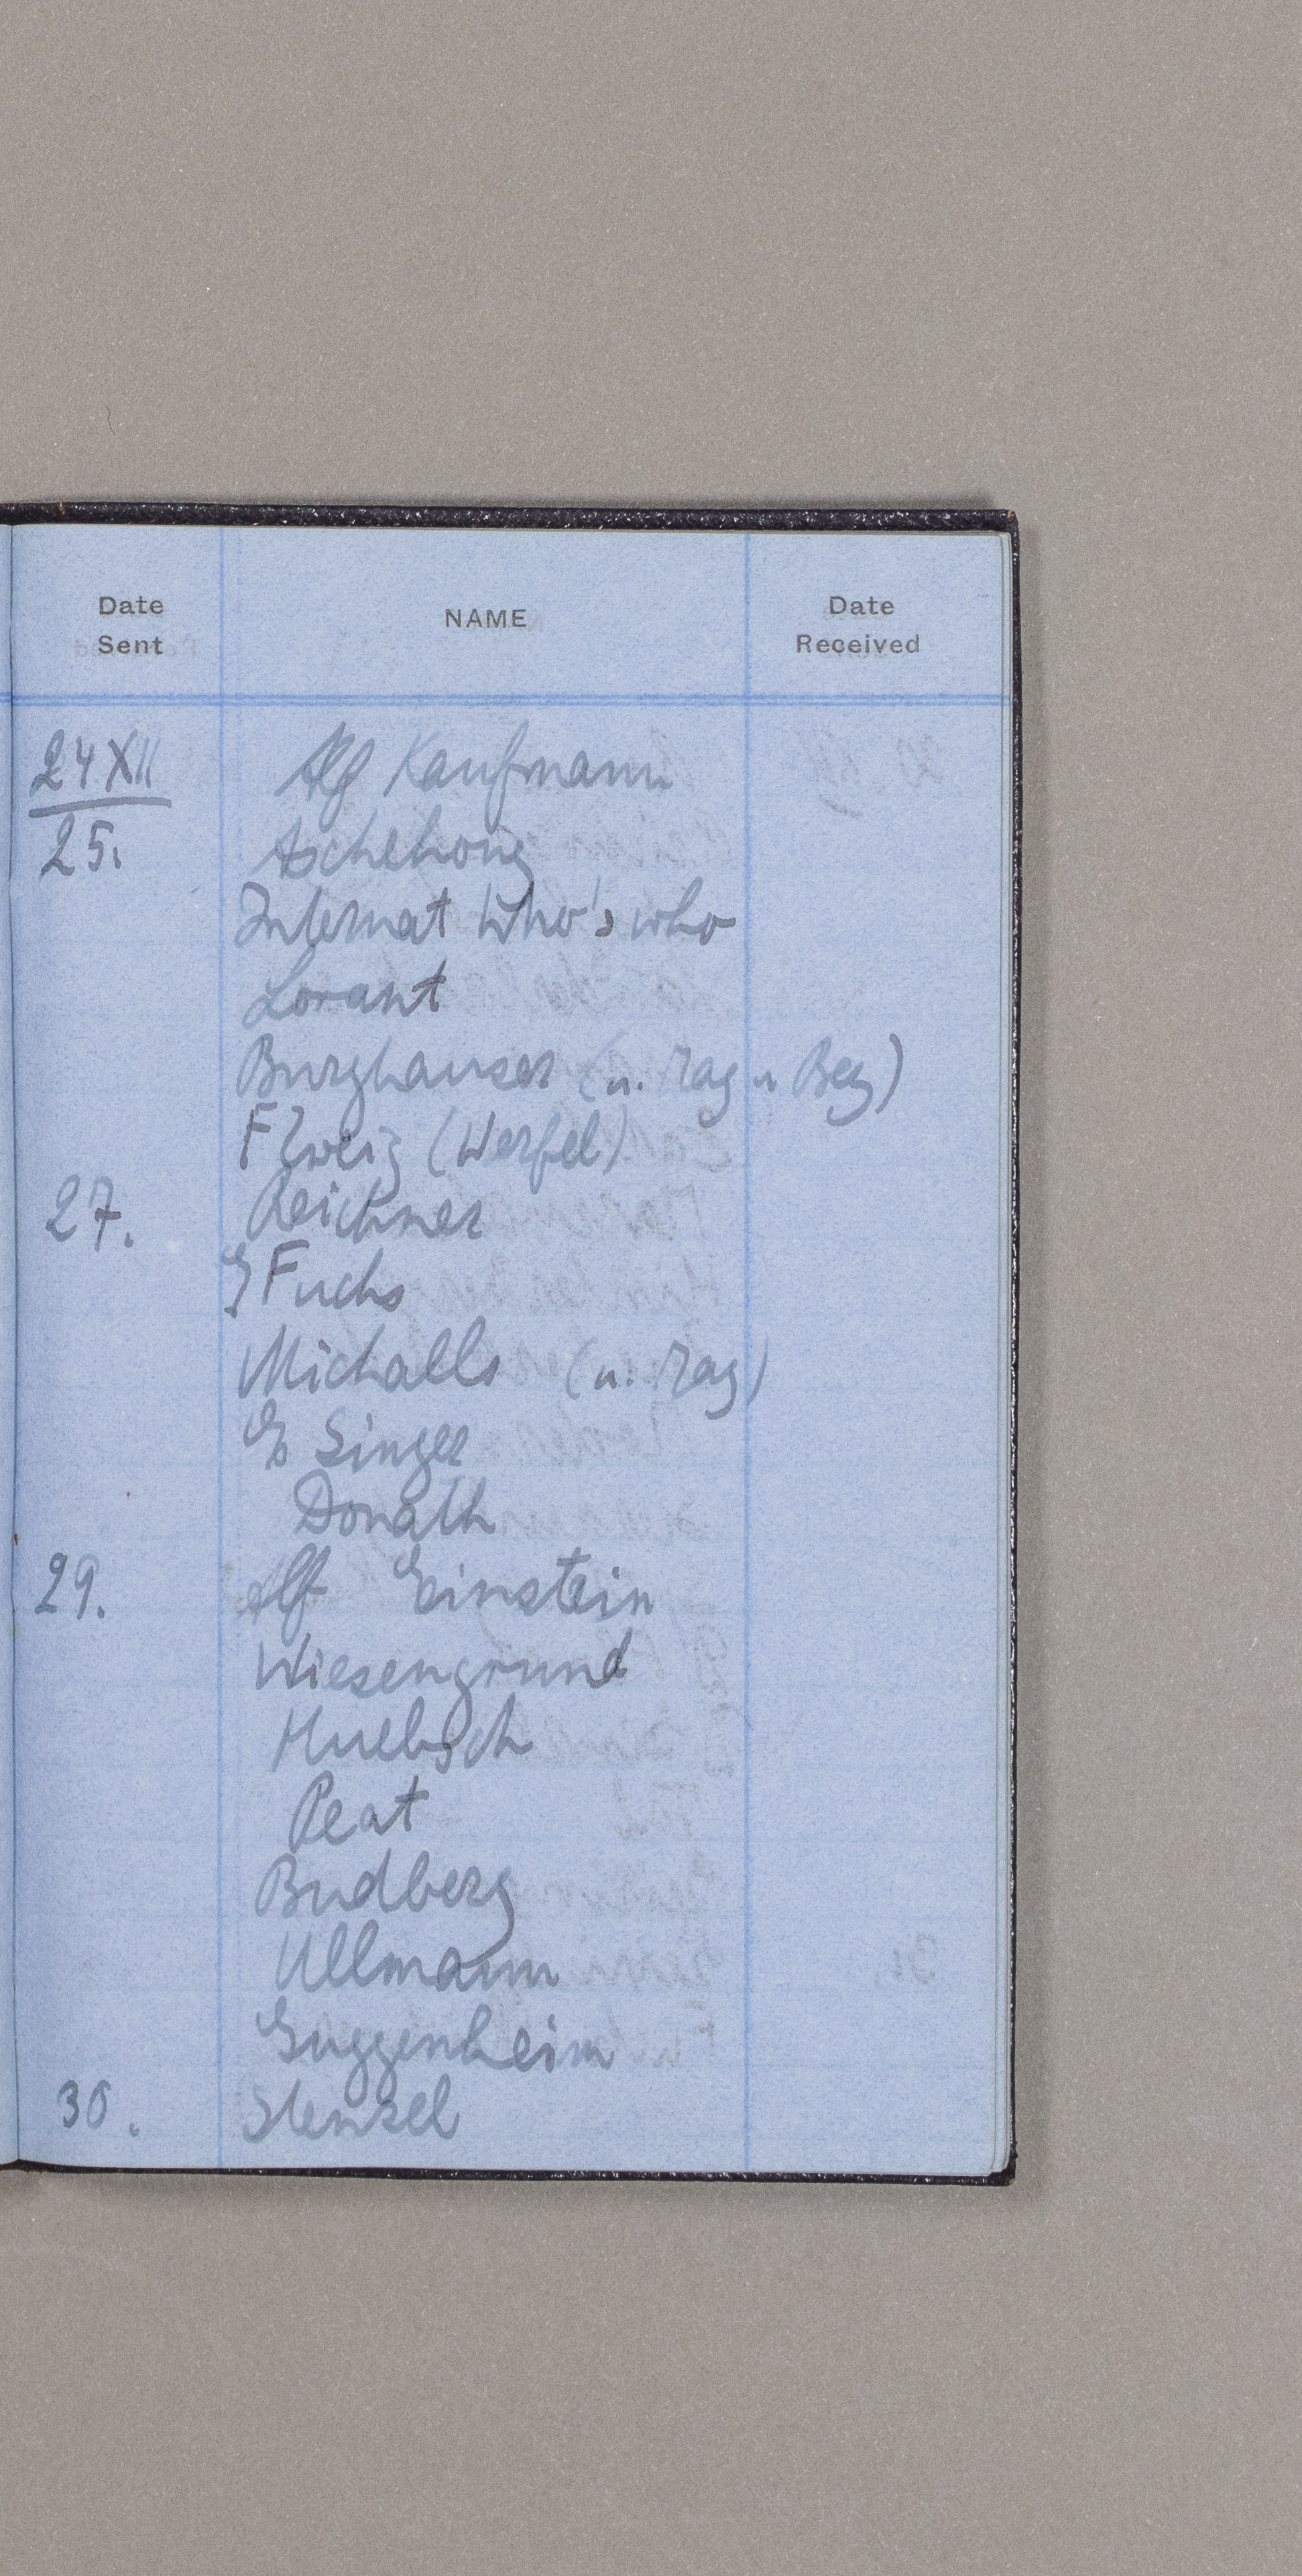 Date Sent NAME Date Received
24 XII Alf Kaufmann
25. Aschehoug
Internat Who's who
Lorant
Burghauser (u. Zag u Beg)
F Zweig (Werfel)
27. Reichner
Fuchs
Michalls (u. Zag)
E Singer
Donath
29. Alf Einstein
Wiesengrund
Huebsch
Peat
Budberg
Ullmann
Guggenheim
30.